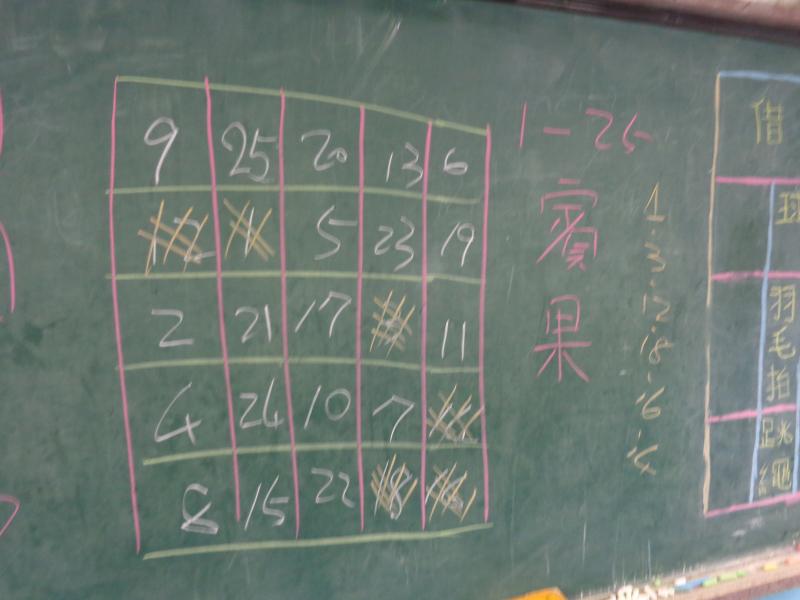 9 25 20 13 6
12 1 5 23 19
2 21 17 11
4 24 10 7
8 15 22 18
1-25
賓果
1.3.12.18.16.14
借
球
羽毛拍
跳繩